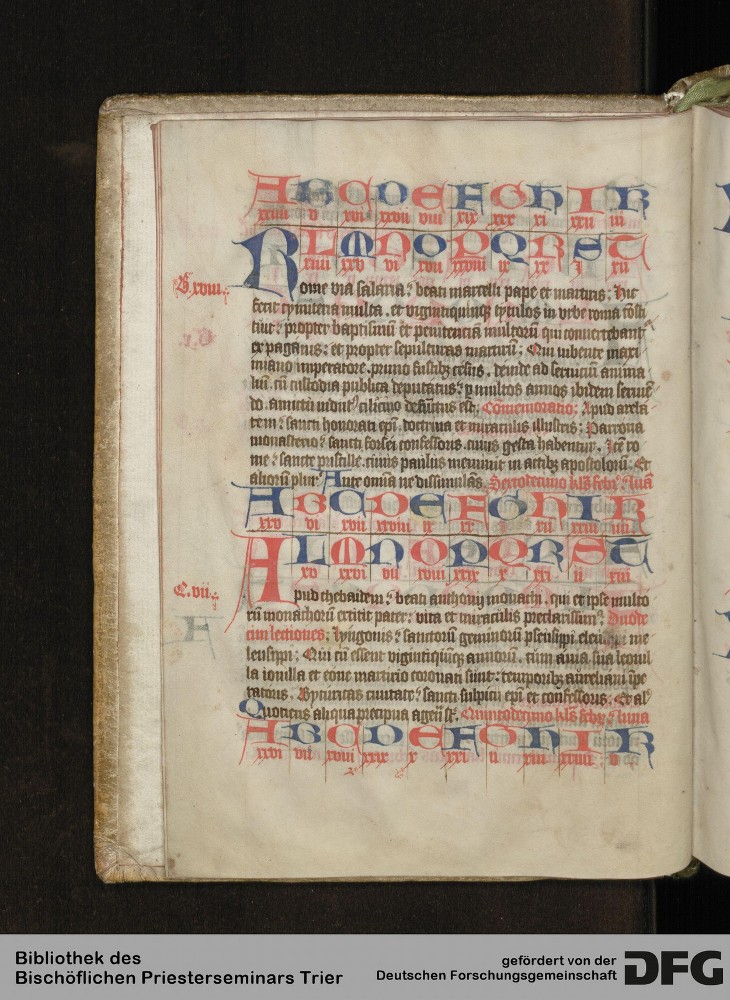 A B C D E F G H I K
xxiiii v xvi xxvii viii xix xxx xi xxii iii
L M N O P Q R S T
xiiii xxv vi xvii xxviii ix xx i xii
B. xviii.
Rome via salaria: beati marcelli pape et martiris: Hic
fecit cymiteria multa. et vigintiquinqꝫ tytulos in vrbe roma cōsti
tuit: propter baptismū et penitenciā multorū qui convertebant᷑
ex paganis: et propter sepulturas martirū: Qui iubente maxi
miano imperatore. primo fustibꝫ cesus. deinde ad serviciū anima
liū. cū custodia publica deputatus: ꝑ multos annos ibidem servie͞
do. amictu indut᷑ cilicino defūctus est. Cōmemoratio: Apud arela
tem: sancti honorati ep̄i. doctrina et miraculis illustris: Parrona
monasterio: sancti forsei confessoris. cuius gesta habentur. Itē ro
me: sancte priscille. cuius paulus meminit in actibꝫ apostolorū: Et
aliorū plur᷑ Ante omnia ne dissimulās. Sextodecimo kl̄s febr᷑: luā
A B C D E F G H I K
xxv vi xvii xxviii ix xx xii xxiii iiii
L M N O P Q R S T
xv xxvi vii xviii xxix x xxi ii xiii
C. vii.
Apud thebaidem: beati anthonij monachi. qui et ipse multo
rū monachorū extitit pater: vita et miraculis preclarissimꝰ. Duode
cim lectiones: lyngonis: sanctorū geminorū pseusippi eleusippi me
leusippi: Qui cū essent vigintiquinqꝫ annorū. cum auia sua leonil
la ionilla et eone martirio coronati sunt: temporibꝫ aureliani īpe
ratoris. Byturicas civitate: sancti sulpicii ep̄i et confessoris. Et al᷑
Quotiens aliqua precipua agēd sūt. Quintodecimo kl̄s febr᷑: luna
A B C D E F G H I K
xxvi vii xviii xxix x xxi ii xiii xxiiii v
Bibliothek des
Bischöflichen Priesterseminars Trier
gefördert von der
Deutschen Forschungsgemeinschaft DFG